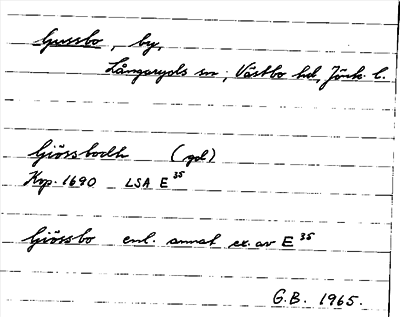 Gussbo, by,
Långaryds sn, Västbo hd, Jönk. l.
Giössbodh (gd)
Krp. 1690 LSA E 35
Giössbo enl. annat ex. av E 35
G.B. 1965.